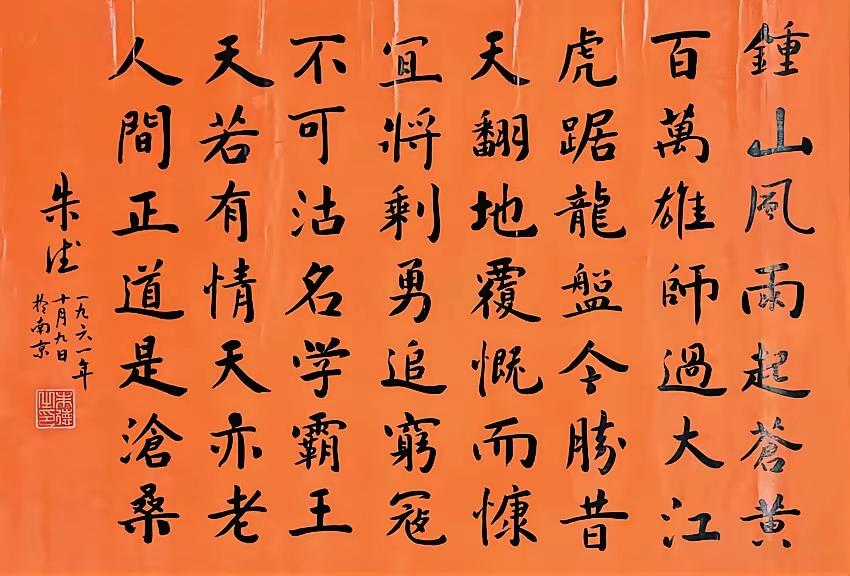 鍾山風雨起蒼黄
百萬雄師過大江
虎踞龍盤今勝昔
天翻地覆慨而慷
宜將剩勇追窮寇
不可沽名学霸王
天若有情天亦老
人間正道是滄桑
朱德
一九六一年
十月九日
於南京
朱德之印